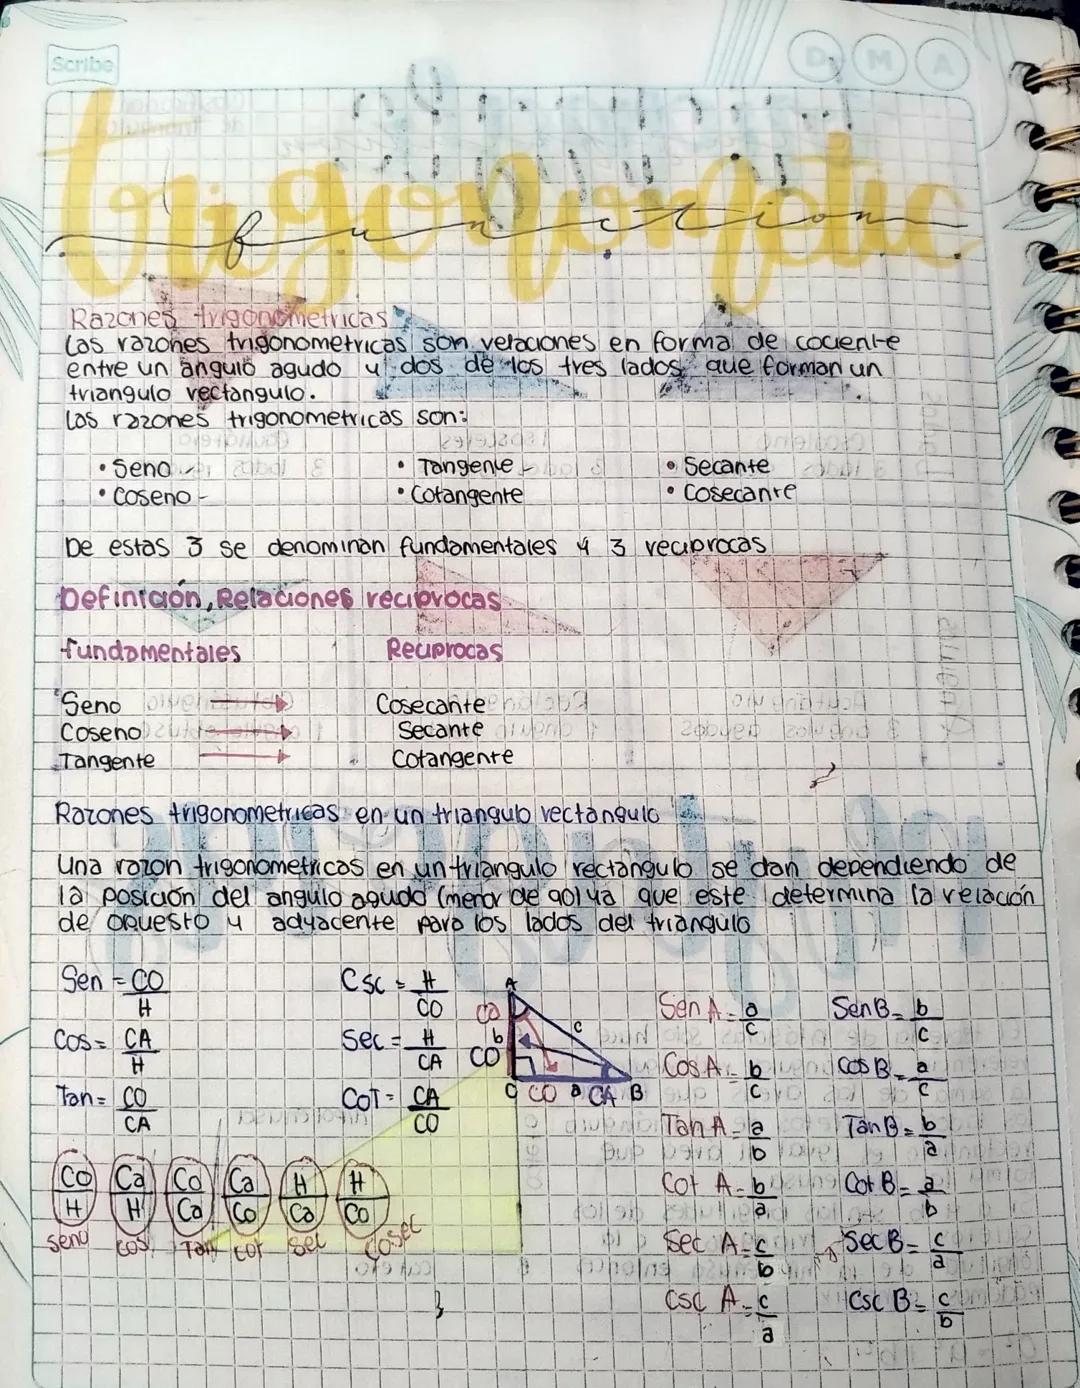 Scribe
D M A
trigonometic
function
Razones trigonometricas
Las razones trigonometricas son relaciones en forma de cociente
entre un angulo agudo y dos de los tres lados que forman un
triangulo rectangulo.
Las razones trigonometricas son:
• Seno • Tangente • Secante
• Coseno • Cotangente • Cosecante
De estas 3 se denominan fundamentales y 3 reciprocas
Definición, Relaciones reciprocas
fundamentales Reciprocas
Seno → Cosecante
Coseno → Secante
Tangente → Cotangente
Razones trigonometricas en un triangulo rectangulo
Una razon trigonometricas en un triangulo rectangulo se dan dependiendo de
la posición del angulo agudo (menor de 90) ya que este determina la relación
de opuesto y adyacente para los lados del triangulo
Sen = CO/H Csc = H/CO
Cos = CA/H Sec = H/CA
Tan = CO/CA COT = CA/CO
A
CA b c
CO
C CO a CA B
Sen A = a/c Sen B = b/c
Cos A = b/c Cos B = a/c
Tan A = a/b Tan B = b/a
Cot A = b/a Cot B = a/b
Sec A = c/b Sec B = c/a
Csc A = c/a Csc B = c/b
Co/H Ca/H Co/Ca Ca/Co H/Ca H/Co
seno cos Tan cot sec cosec